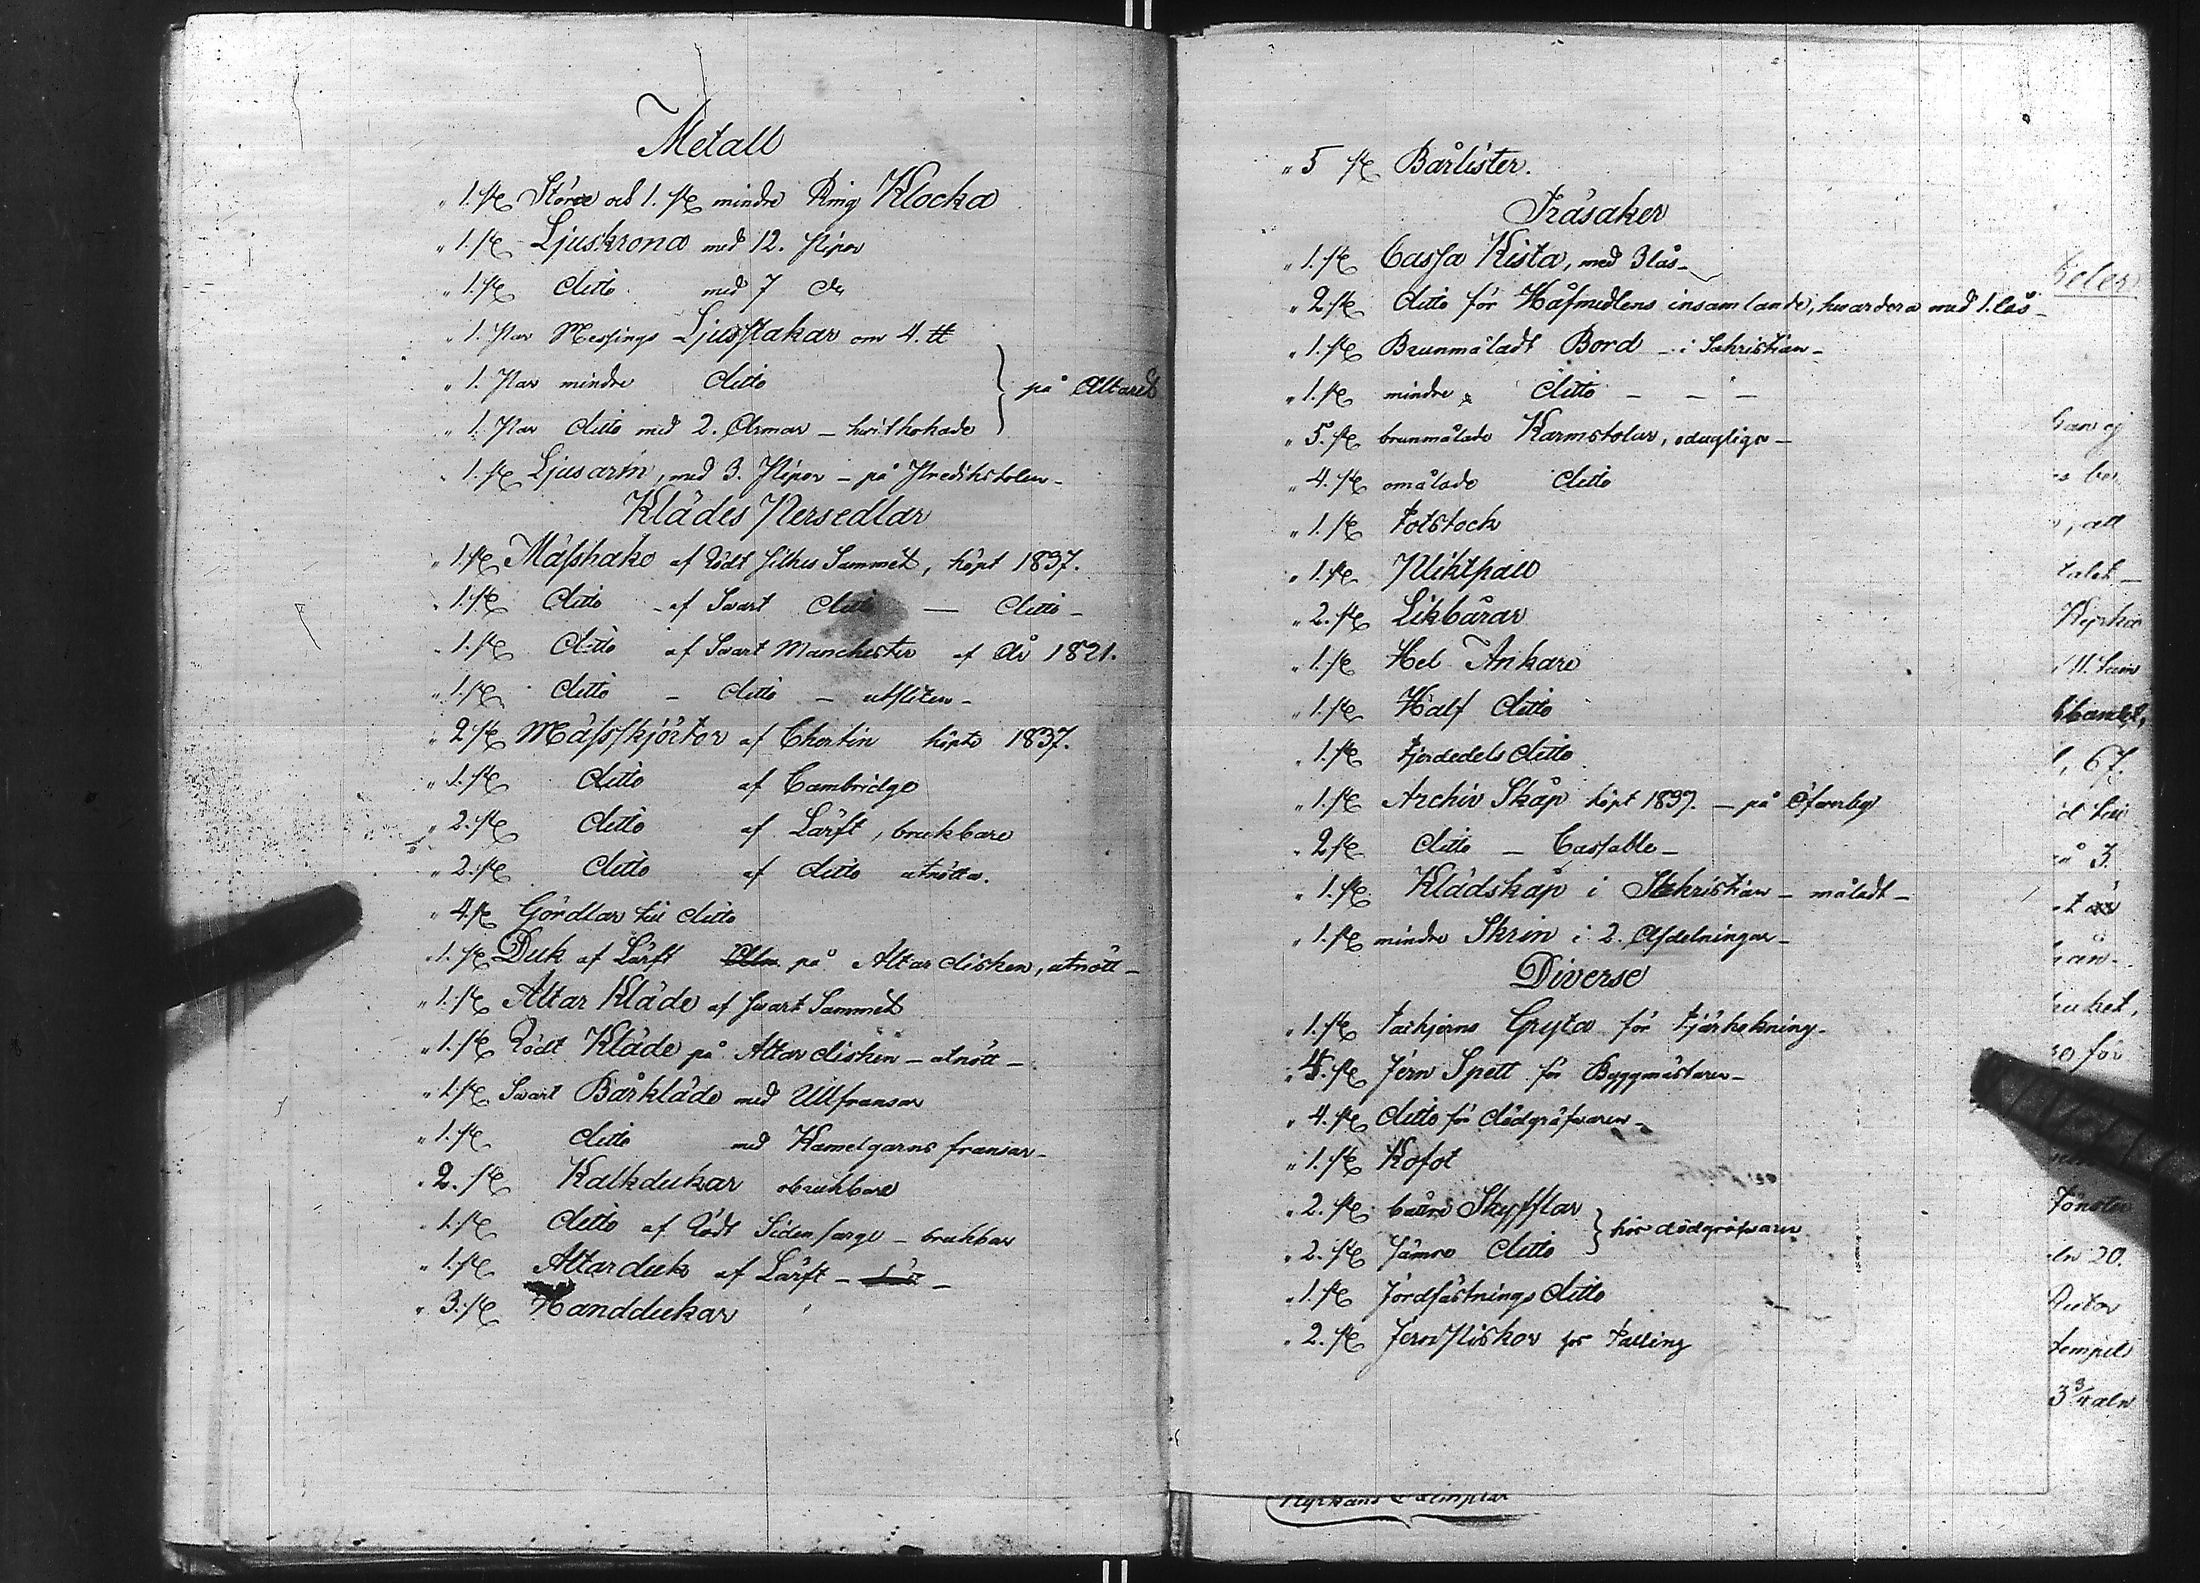 Metall
" 1. st Större och 1. st mindre Ring Klocka
" 1. st Ljuskrona med 12. Pipor
" 1. st ditto med 7 do
" 1. Par Messings Ljusstakar om 4. ℔
" 1. Par mindre ditto
på Altaret
" 1. Par ditto med 2. Armar – hvitkokade
" 1. st Ljusarm, med 3. Pipor – på Predikstolen –
Klädes Persedlar
" 1. st Mässhake af Rödt Silkes Sammet, köpt 1837.
" 1. st ditto af Svart ditto — ditto –
" 1. st ditto af Svart Manchester af År 1821.
" 1. st ditto – ditto – utsliten –
" 2 st Mässskjortor af Chertin köpte 1837.
" 1. st ditto af Cambridge
" 2. st ditto af Lärft, brukbare
" 2. st ditto af ditto utnötta.
" 4. st Gördlar till ditto
" 1. st Duk af Lärft på Altar disken, utnött –
" 1. st Altar Kläde af svart Sammet
" 1. st Rödt Kläde på Altar disken – utnött –
" 1. st Svart Bårkläde med Ullfransar
" 1. st ditto med Kamelgarns fransar –
" 2. st Kalkdukar obrukbare
" 1. st ditto af Rödt Siden sarge – brukbar
" 1. st Altarduk af Lärft –
" 3. st Handdukar
" 5 st Bårlister.
Träsaker
" 1. st Cassa Kista, med 3 lås –
" 2. st ditto för Håfmedlens insamlande, hvardera med 1. lås –
" 1. st Brunmåladt Bord – i Sakristian –
" 1. st mindre ditto – – –
" 5. st brunmålade Karmstolar, odugliga –
" 4. st omålade ditto
" 1. st Fotstock
" 1. st Pliktpall
" 2. st Likbårar
" 1. st Hel Ankare
" 1. st Half ditto
" 1. st Fjerdedels ditto
" 1. st Archiv Skåp köpt 1837. – på Öfverby
" 2 st ditto – Cassable –
" 1. st Klädskåp i Sakristian – måladt –
" 1. st mindre Skrin i 2. Afdelningar –
Diverse
" 1. st tackjerns Gryta för tjärkokning –
" 4. st Jern Spett för Byggmästaren –
" 4. st ditto för dödgräfvaren –
" 1. st Kofot
" 2. st bättre Skyfflar
hos dödgräfvaren
" 2. st sämre ditto
" 1. st Jordfästnings ditto
" 2. st Jern Piskor för Talling
eler
kan ej
, att
talet –
Kyrko
67.
3.
ruket,
so för
Fönster
aln 20.
Rutor
tempel
3 3/4 aln
Kyrkans Exemplar